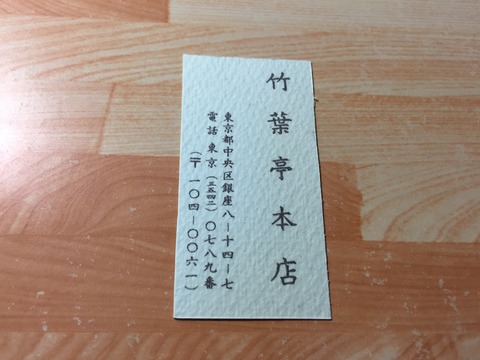 竹葉亭本店
東京都中央区銀座八ー十四ー七
電話 東京(三五四二)〇七八九番
(〒一〇四ー〇〇六一)